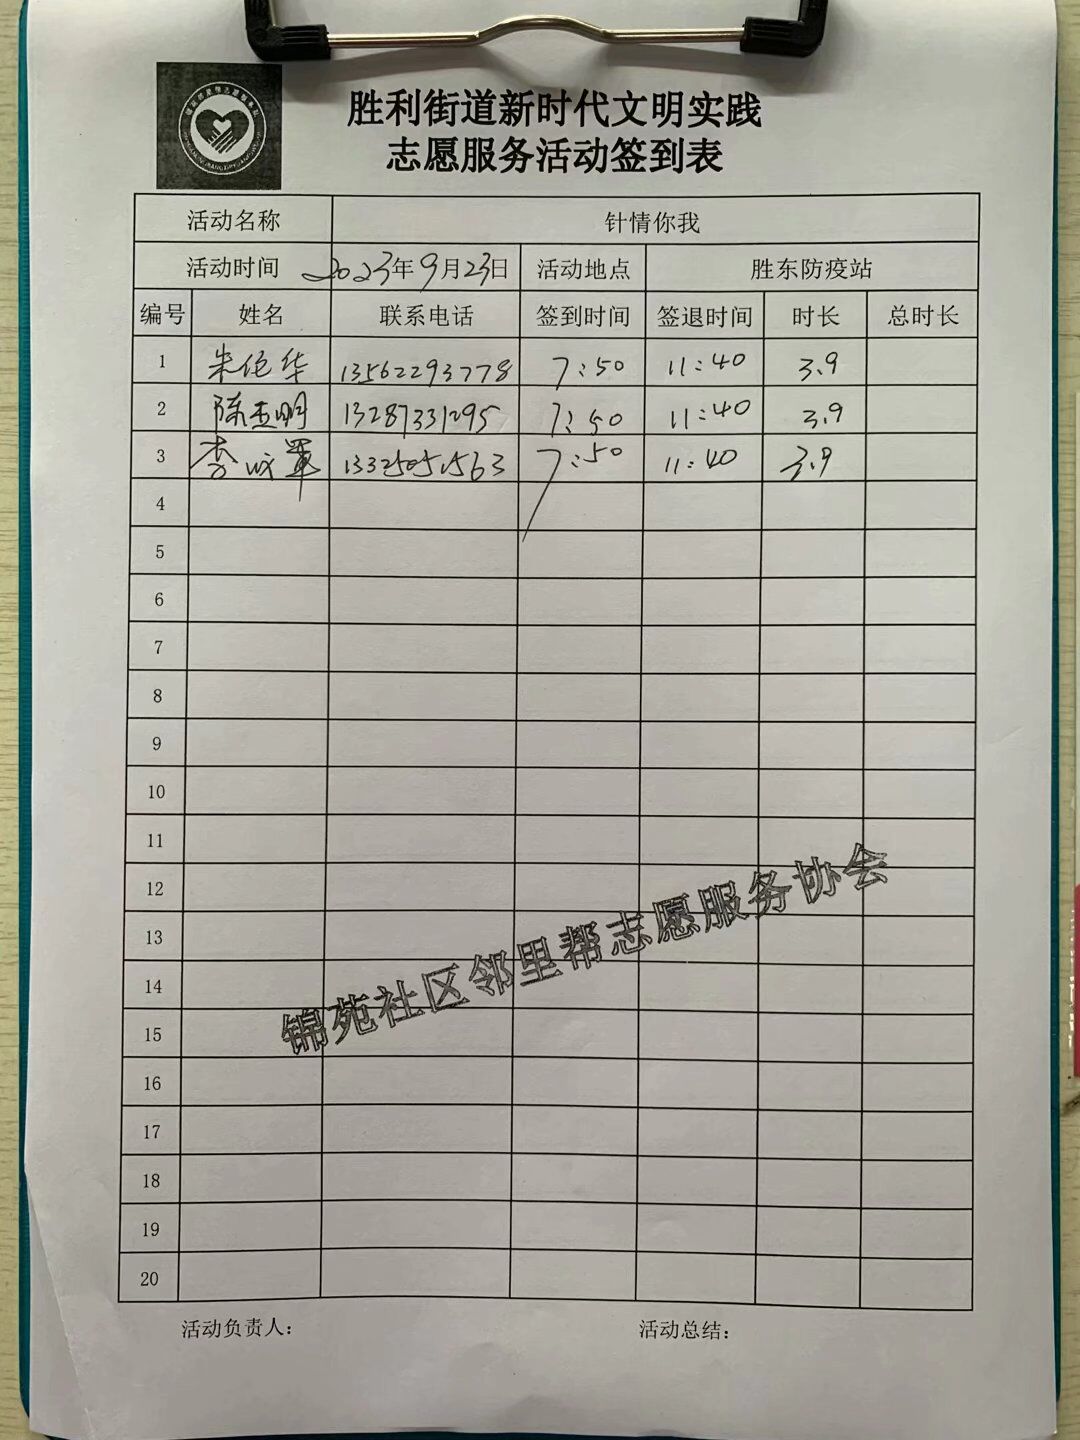 胜利街道新时代文明实践
志愿服务活动签到表
活动名称 针情你我
活动时间 2023年9月23日 活动地点 胜东防疫站
编号 姓名 联系电话 签到时间 签退时间 时长 总时长
1 朱 华 13562293778 7:50 11:40 3.9
2 陈 明 13287331295 7:50 11:40 3.9
3 李 军 13325051563 7:50 11:40 3.9
4
5
6
7
8
9
10
11
12
13
14
15
16
17
18
19
20
锦苑社区邻里帮志愿服务协会
活动负责人： 活动总结：